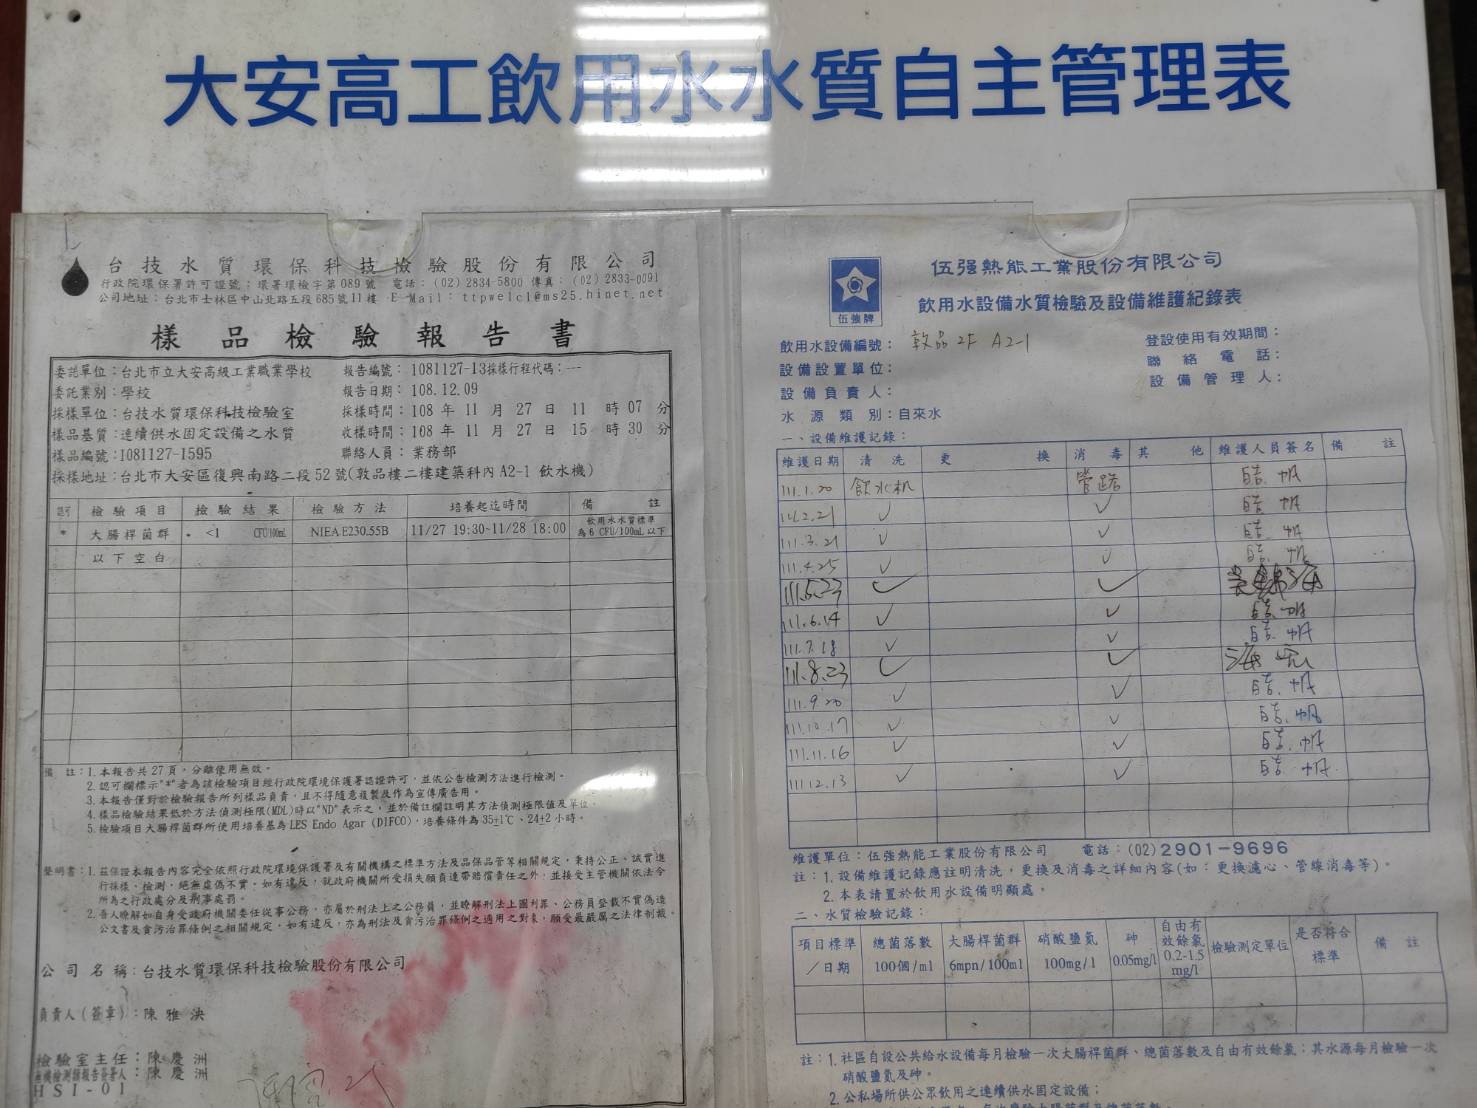 大安高工飲用水水質自主管理表
台技水質環保科技檢驗股份有限公司
行政院環保署許可證號：環署環檢字第089號 電話：(02)2834-5800 傳真：(02)2833-0091
公司地址：台北市士林區中山北路五段685號11樓 E-Mail：ttpwelcl@ms25.hinet.net
樣品檢驗報告書
委託單位：台北市立大安高級工業職業學校 報告編號：1081127-13採樣行程代碼：---
委託業別：學校 報告日期：108.12.09
採樣單位：台技水質環保科技檢驗室 採樣時間：108 年 11 月 27 日 11 時 07 分
樣品基質：連續供水固定設備之水質 收樣時間：108 年 11 月 27 日 15 時 30 分
樣品編號：1081127-1595 聯絡人員：業務部
採樣地址：台北市大安區復興南路二段52號(敦品樓二樓建築科內A2-1 飲水機)
認可 檢驗項目 檢驗結果 檢驗方法 培養起迄時間 備註
* 大腸桿菌群 <1 CFU/100mL NIEA E230.55B 11/27 19:30~11/28 18:00 飲用水水質標準為6 CFU/100mL以下
以下空白
備 註：1.本報告共27頁，分離使用無效。
2.認可欄標示"*"者為該檢驗項目經行政院環境保護署認證許可，並依公告檢測方法進行檢測。
3.本報告僅對於檢驗報告所列樣品負責，且不得隨意複製及作為宣傳廣告用。
4.樣品檢驗結果低於方法偵測極限(MDL)時以"ND"表示之，並於備註欄註明其方法偵測極限值及單位。
5.檢驗項目大腸桿菌群所使用培養基為LES Endo Agar (DIFCO)，培養條件為35±1℃、24±2小時。
聲明書：1.茲保證本報告內容完全依照行政院環境保護署及有關機構之標準方法及品保品管等相關規定，秉持公正、誠實進
行採樣、檢測，絕無虛偽不實，如有違反，就政府機關所受損失願負連帶賠償責任之外，並接受主管機關依法令
所為之行政處分及刑事處罰。
2.吾人瞭解如自身受政府機關委任從事公務，亦屬於刑法上之公務員，並瞭解刑法上圖利罪、公務員登載不實偽造
公文書及貪污治罪條例之相關規定，如有違反，亦為刑法及貪污治罪條例之適用之對象，願受最嚴厲之法律制裁。
公司名稱：台技水質環保科技檢驗股份有限公司
負責人(簽章)：陳雅泱
檢驗室主任：陳慶洲
無機檢測類報告簽署人：陳慶洲
HSI-01
伍強牌
伍强熱能工業股份有限公司
飲用水設備水質檢驗及設備維護紀錄表
飲用水設備編號：敦品2F A2-1 登設使用有效期間：
設備設置單位： 聯絡電話：
設備負責人： 設備管理人：
水源類別：自來水
一、設備維護記錄：
維護日期 清洗 更換 消毒 其他 維護人員簽名 備註
111.1.20 飲水机 管路
111.2.21 ✓ ✓
111.3.21 ✓ ✓
111.4.25 ✓ ✓
111.5.23 ✓ ✓
111.6.14 ✓ ✓
111.7.18 ✓ ✓
111.8.23 ✓ ✓
111.9.20 ✓ ✓
111.10.17 ✓ ✓
111.11.16 ✓ ✓
111.12.13 ✓ ✓
維護單位：伍强熱能工業股份有限公司 電話：(02)2901-9696
註：1.設備維護記錄應註明清洗，更換及消毒之詳細內容(如：更換濾心、管線消毒等)。
2.本表請置於飲用水設備明顯處。
二、水質檢驗記錄：
項目標準／日期 總菌落數 100個/ml 大腸桿菌群 6mpn/100ml 硝酸鹽氮 100mg/l 砷 0.05mg/l 自由有效餘氯 0.2-1.5 mg/l 檢驗測定單位 是否符合標準 備註
註：1.社區自設公共給水設備每月檢驗一次大腸桿菌群、總菌落數及自由有效餘氯；其水源每月檢驗一次
硝酸鹽氮及砷。
2.公私場所供公眾飲用之連續供水固定設備：